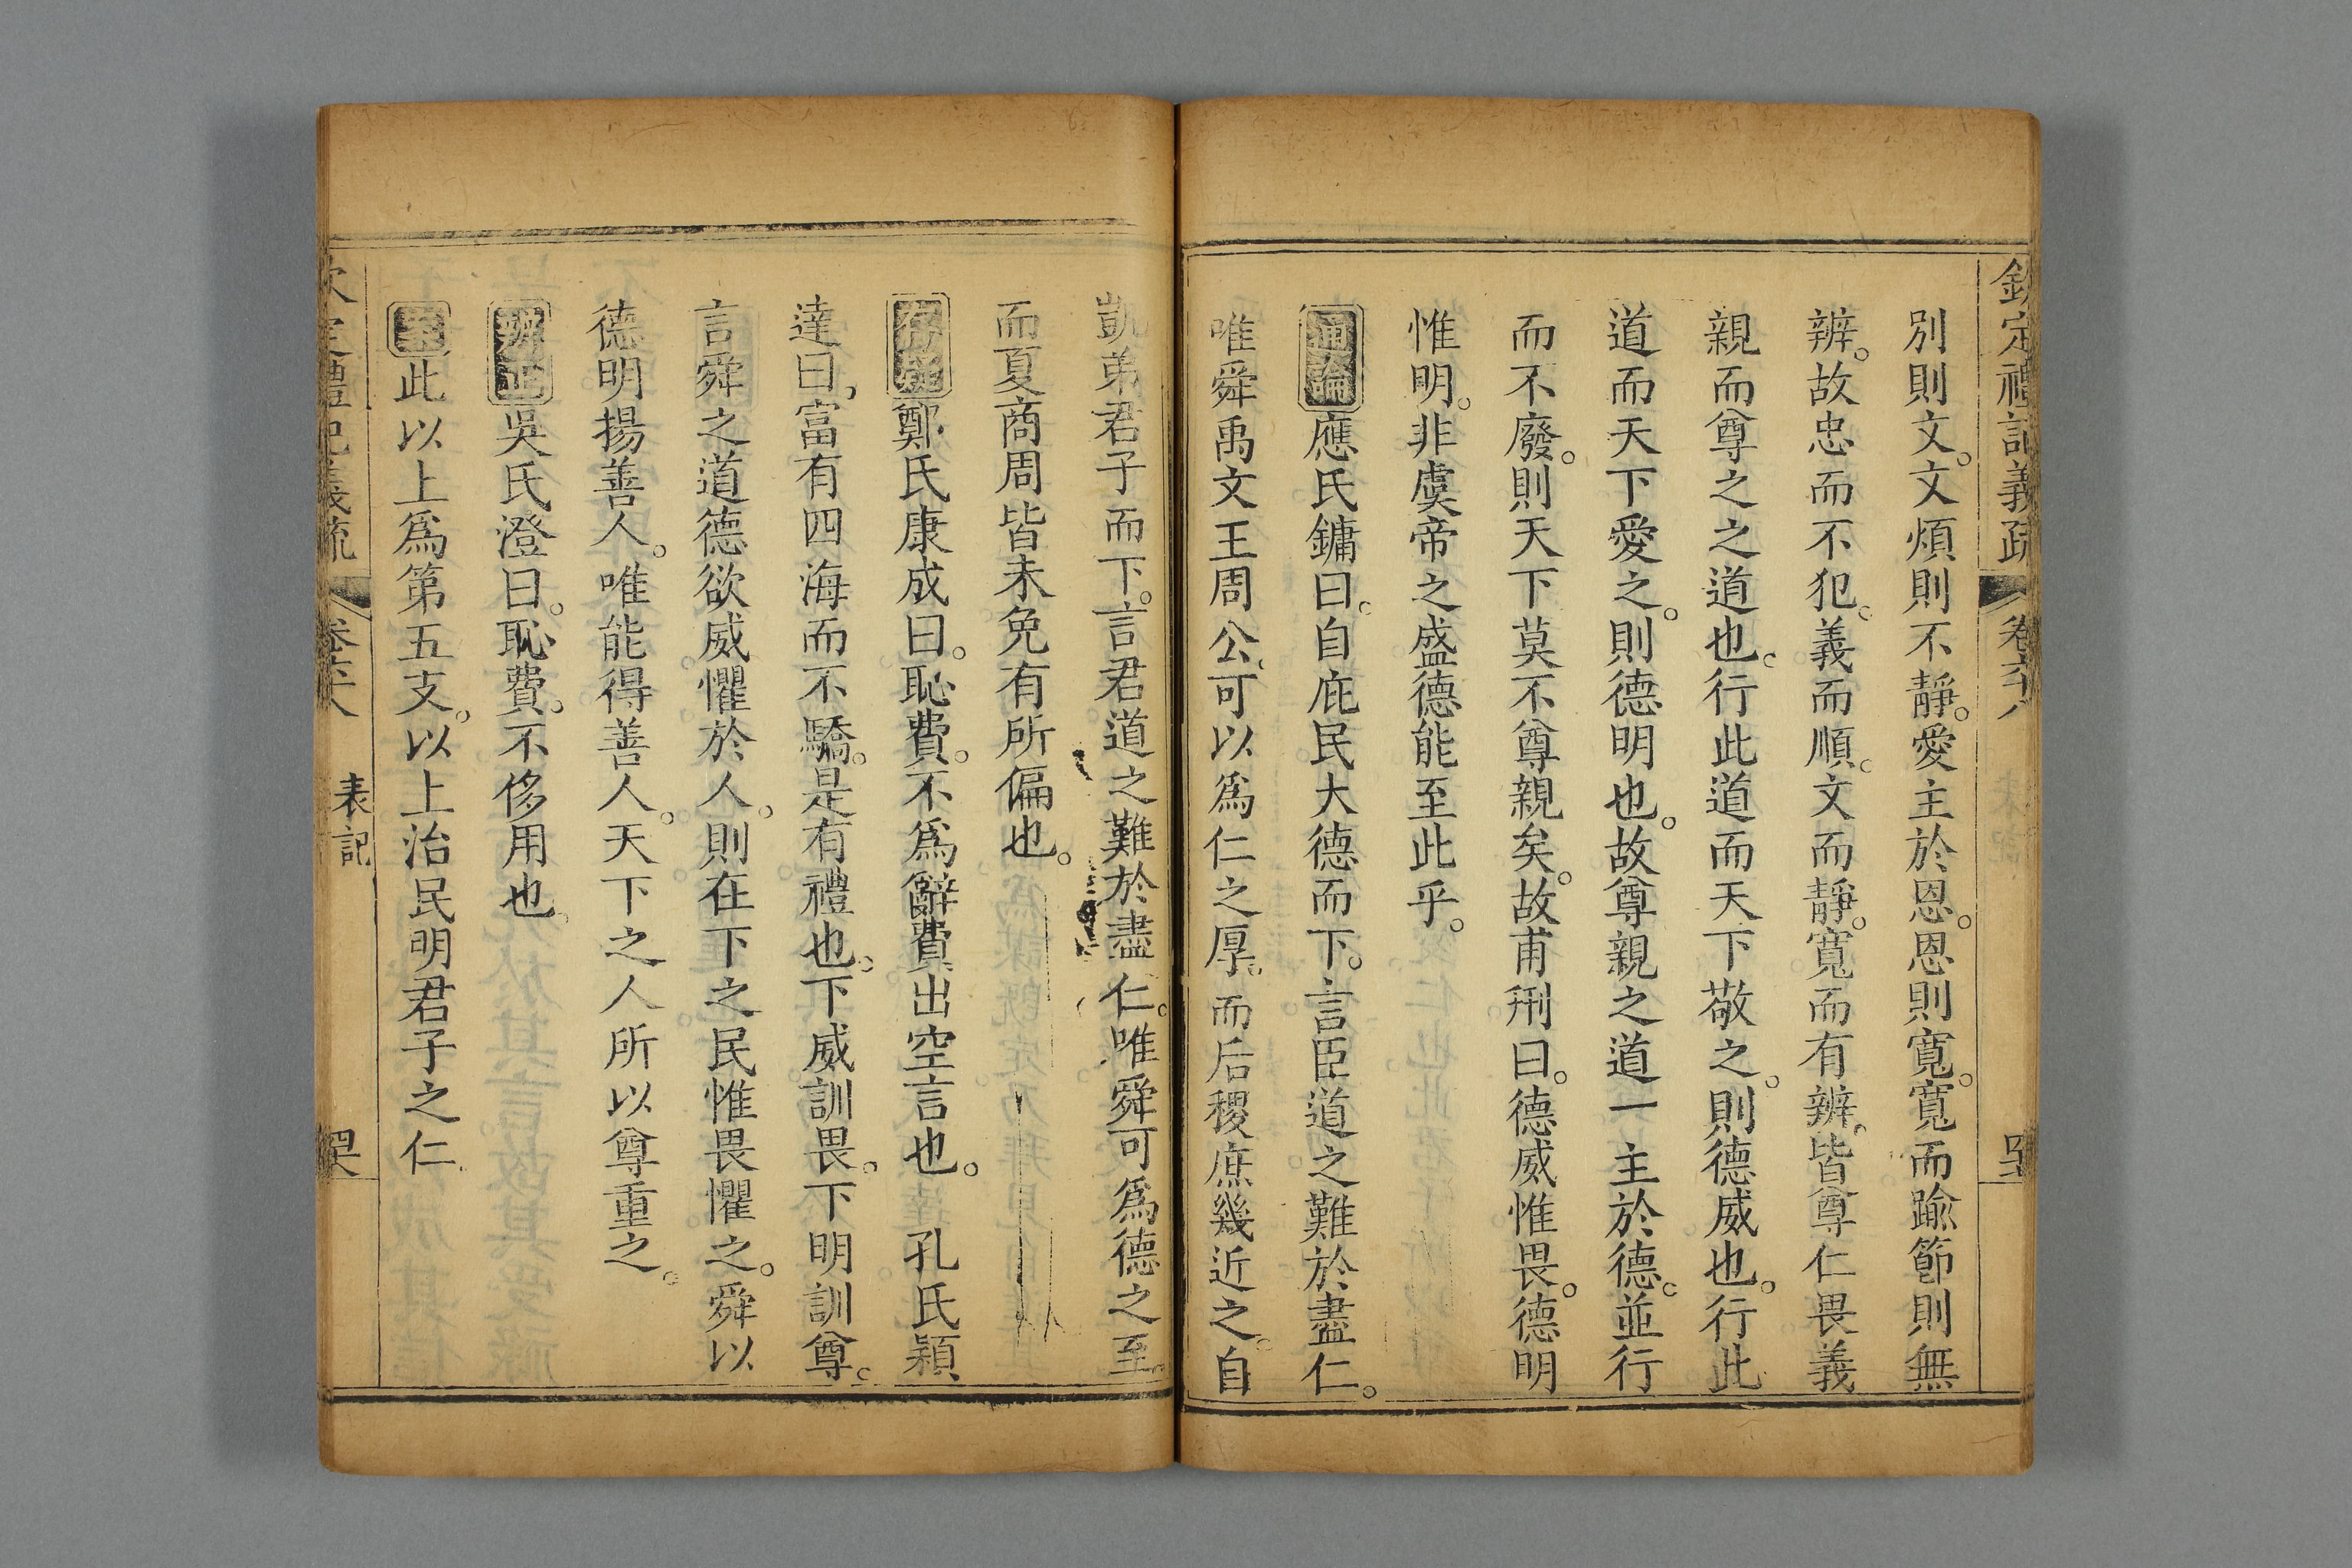 欽定禮記義疏 卷六十八
別則文。文煩則不靜。愛主於恩。恩則寬。寬而踰節則無
辨。故忠而不犯。義而順。文而靜。寬而有辨。皆尊仁畏義
親而尊之之道也。行此道而天下敬之。則德威也。行此
道而天下愛之。則德明也。故尊親之道一主於德。並行
而不廢。則天下莫不尊親矣。故甫刑曰。德威惟畏。德明
惟明。非虞帝之盛德能至此乎。
通論應氏鏞曰。自庇民大德而下。言臣道之難於盡仁。
唯舜禹文王周公。可以爲仁之厚。而后稷庶幾近之。自
凱弟君子而下。言君道之難於盡仁。唯舜可爲德之至。
而夏商周皆未免有所偏也。
存疑鄭氏康成曰。恥費。不爲辭費出空言也。 孔氏穎
達曰。富有四海而不驕。是有禮也。下威訓畏。下明訓尊。
言舜之道德欲威懼於人。則在下之民惟畏懼之。舜以
德明揚善人。唯能得善人。天下之人所以尊重之。
辨正吳氏澄曰。恥費。不侈用也。
案此以上爲第五支。以上治民明君子之仁
欽定禮記義疏 卷六十八 表記